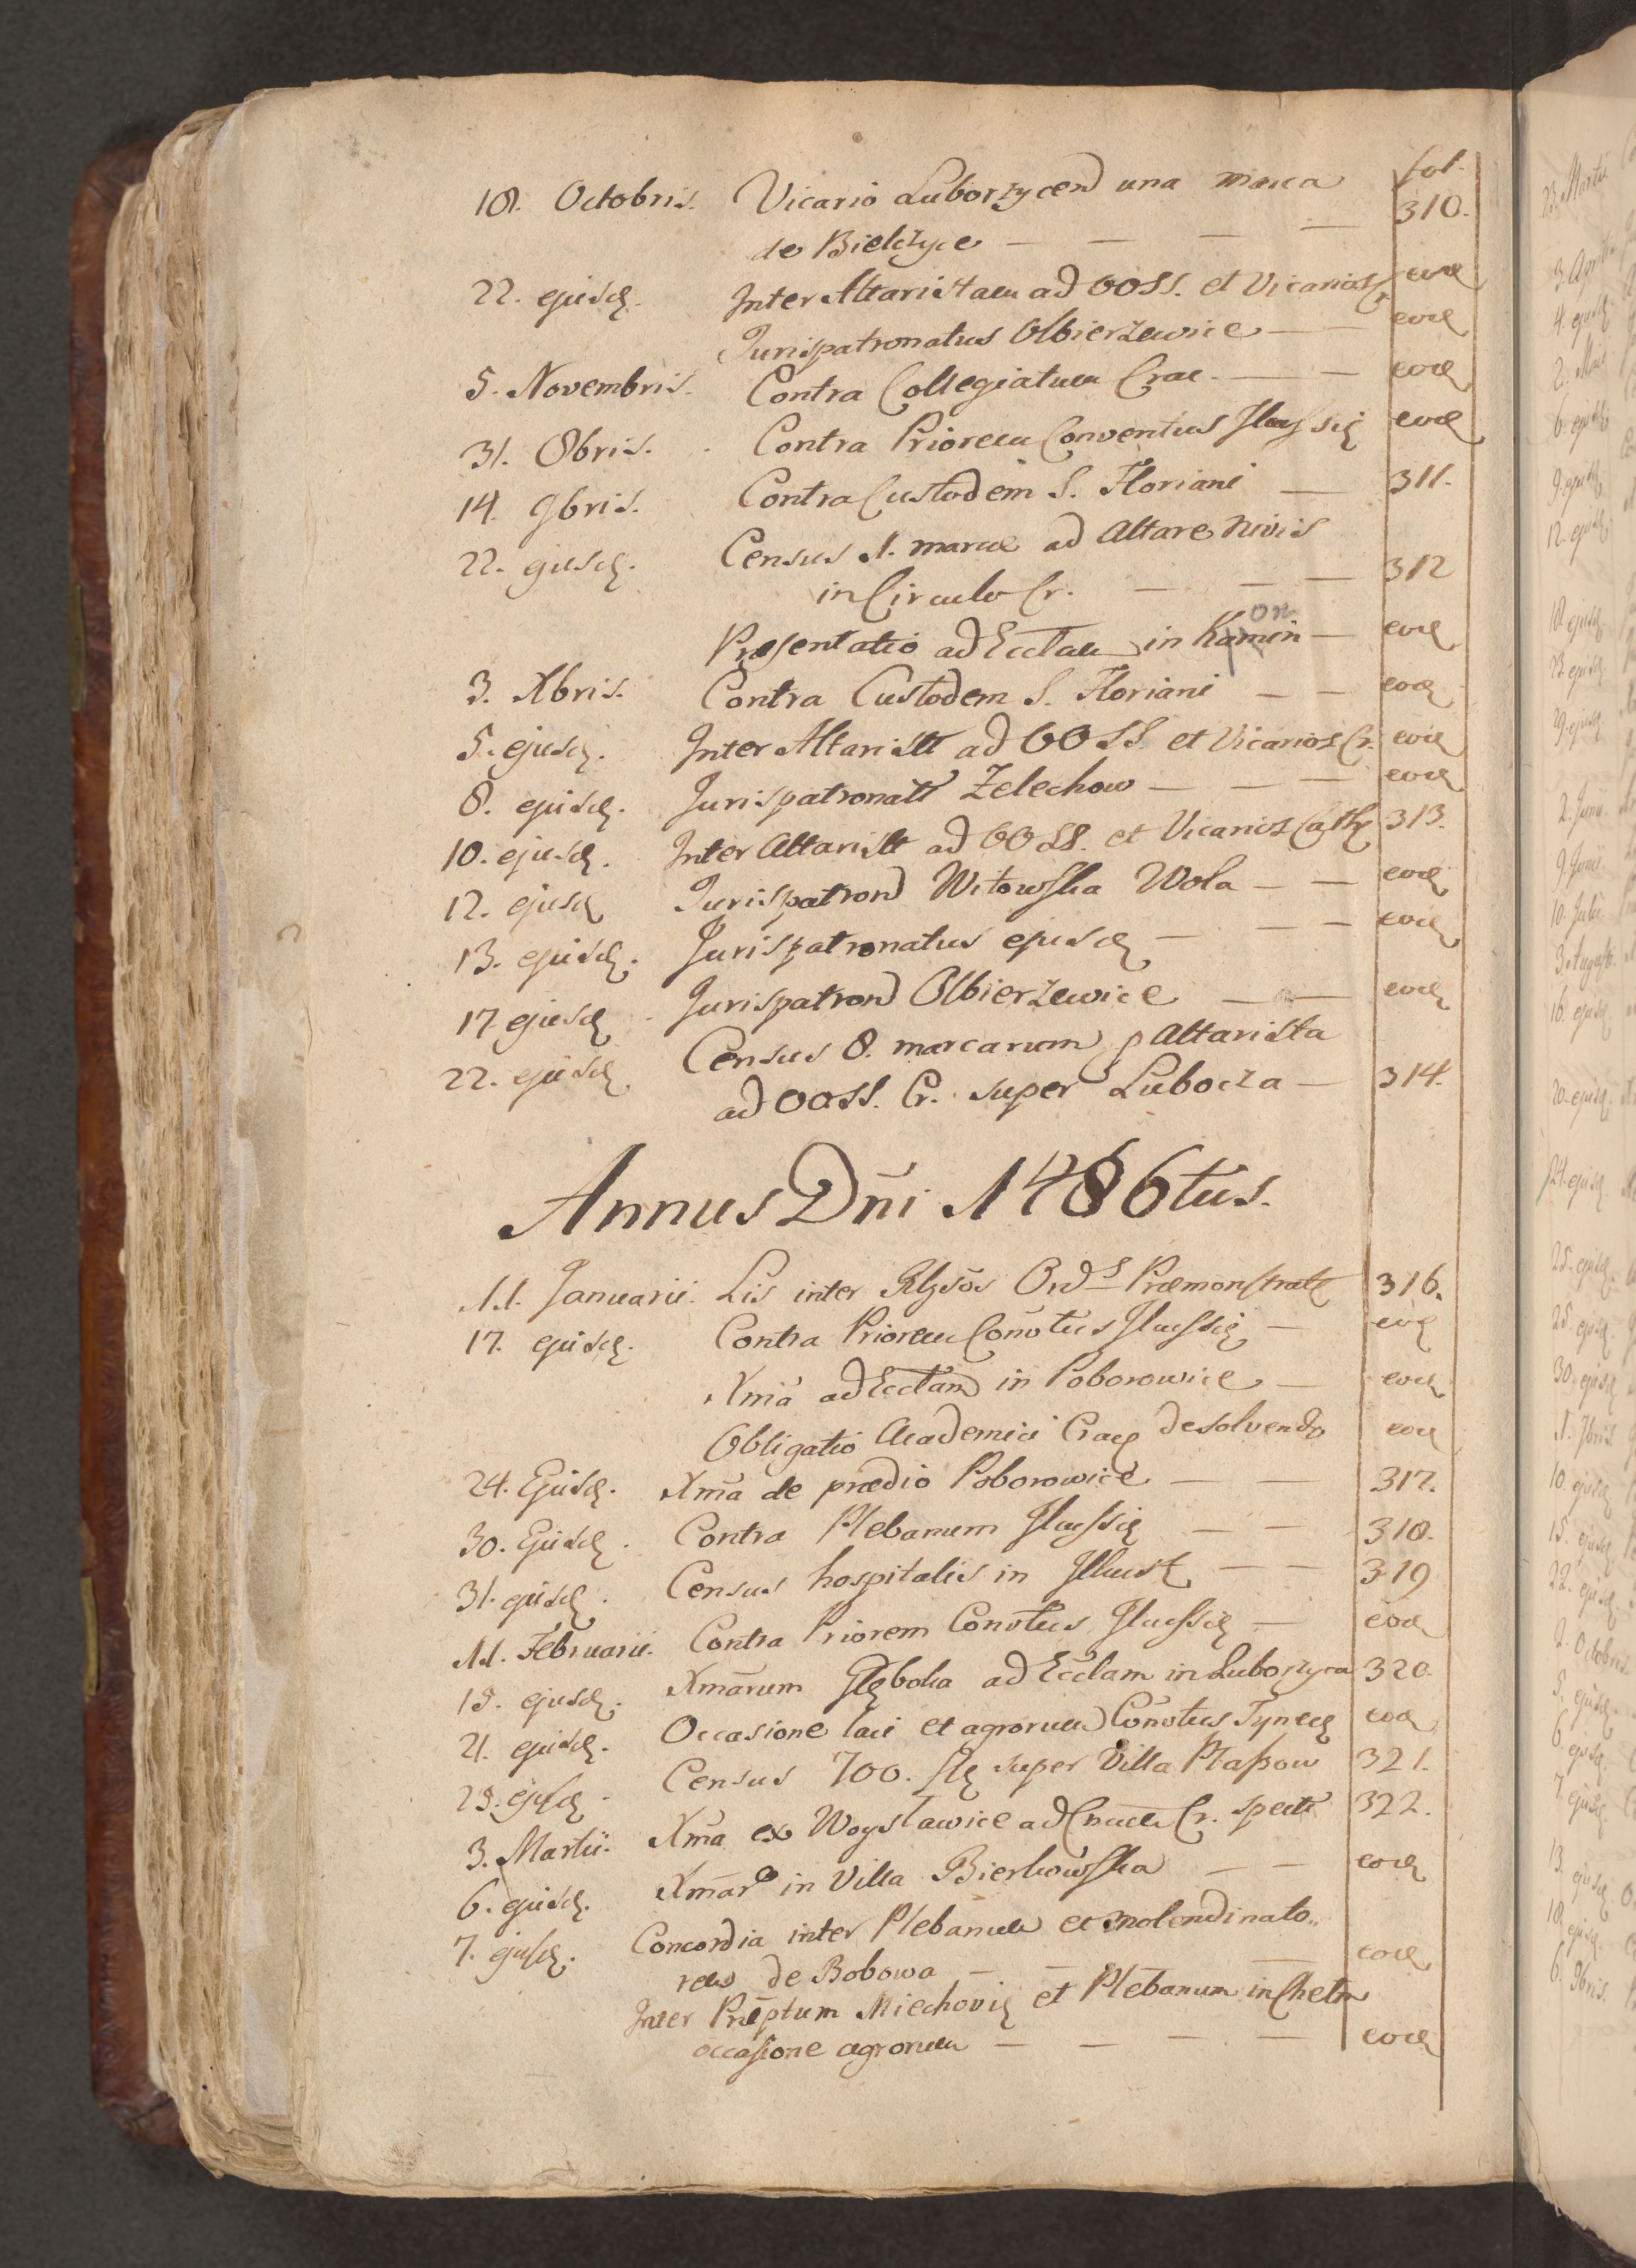 fol.
18. Octobris. Vicario Luborzycen una marca
de Bielczyce — — — — 310.
22. ejusd. Inter Altaristam ad OOSS. et Vicarios Cr. eod
Jurispatronatus Olbierzewice — — eod
5. Novembris. Contra Collegiatum Crac. — — eod
31. 8bris. Contra Priorem Conventus Ilkussie eod
14. 9bris. Contra Custodem S. Floriani — 311.
22. ejusd. Census 1. marcæ ad Altare Nivis
in Circulo Cr. — — — 312
Præsentatio ad Ecclam in Kamin — eod
on
3. Xbris. Contra Custodem S. Floriani — — eod
5. ejusd. Inter Altarist ad OOSS. et Vicarios Cr. eod
8. ejusd. Jurispatronatt Zelechow — — — eod
10. ejusd. Inter Altarist ad OOSS. et Vicarios Cath 313.
12. ejusd Jurispatron Witowska Wola — — eod
13. ejusd. Jurispatronatus ejusd — — — eod
17 ejusd Jurispatron Olbierzewice — — eod
22. ejusd. Census 8. marcarum p Altarista
ad OOSS. Cr. super Lubocza — 314.
Annus Dñi 1486tus.
11. Januarii. Lis inter Rlgsos Ords Præmonstrat 316.
17. ejusd. Contra Priorem Conõtus Ilkussie — eod
Xma ad Ecclam in Poborowice — eod
Obligatio Academici Crac de solvendo eod
24. Ejusd. Xma de prædio Poborowice — — 317.
30. Ejusd. Contra Plebanum Ilkussie — — 318.
31. ejusd. Census hospitalis in Ilkust — — 319
11. Februarii. Contra Priorem Conotus Ilkussie — eod
15. ejusd. Xmarum Głęboka ad Ecclam in Luborzyca 320.
21. ejusd. Occasione laci et agrorum Conõtus Tynec eod
23. ejusd. Census 700. fl super Villa Płaszow 321.
3. Martii. Xma ex Woysławice ad Cr. spect 322.
6. ejusd. Xmar in Villa Bierkowska — — eod
7. ejusd. Concordia inter Plebanum et molendinato..
rem de Bobowa — — — — eod
Inter Præptum Miechovie et Plebanum in Chelm
occasione agrorum — — — — eod